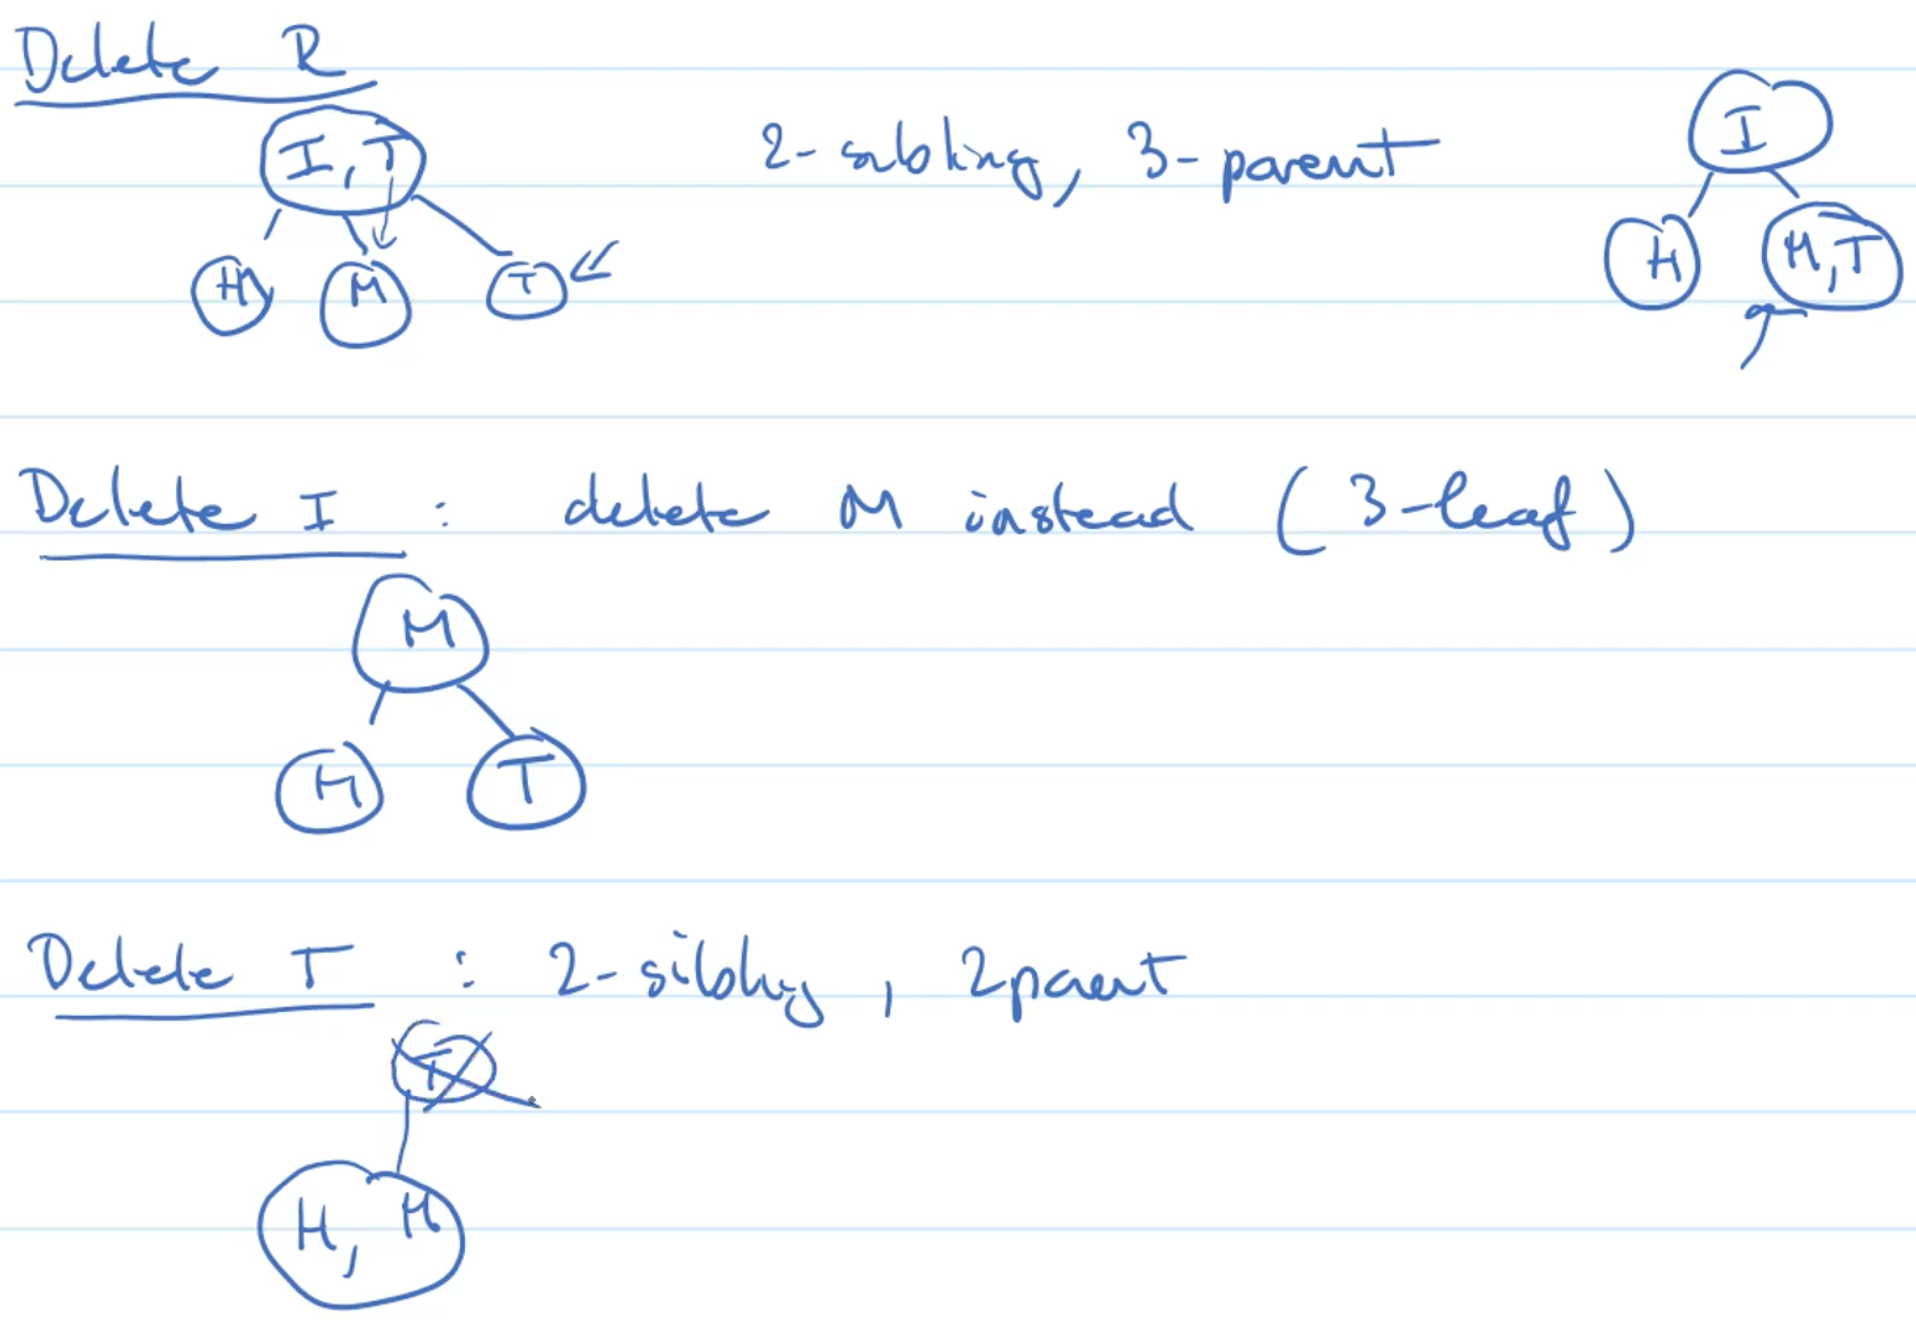 Delete R
I, T
2-sibling, 3-parent
I
H M T
H M, T
Delete I : delete M instead (3-leaf)
M
H T
Delete T : 2-sibling, 2parent
T
H, M